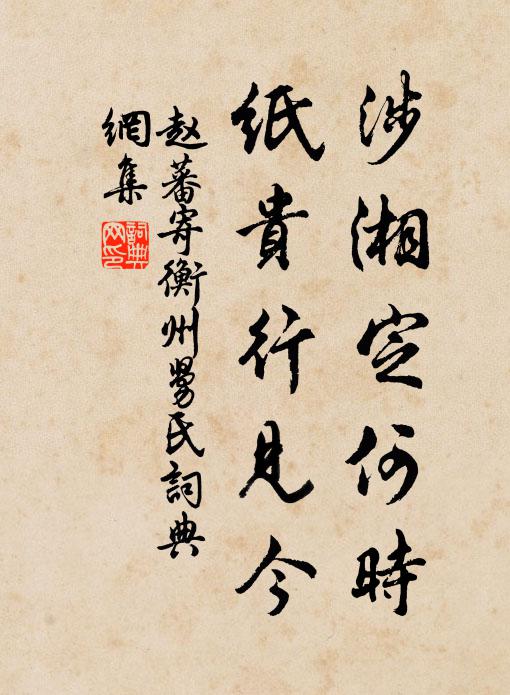 涉湘定何時
紙貴行見今
赵蕃寄衡州舅氏詞典
網集
詞典
网印